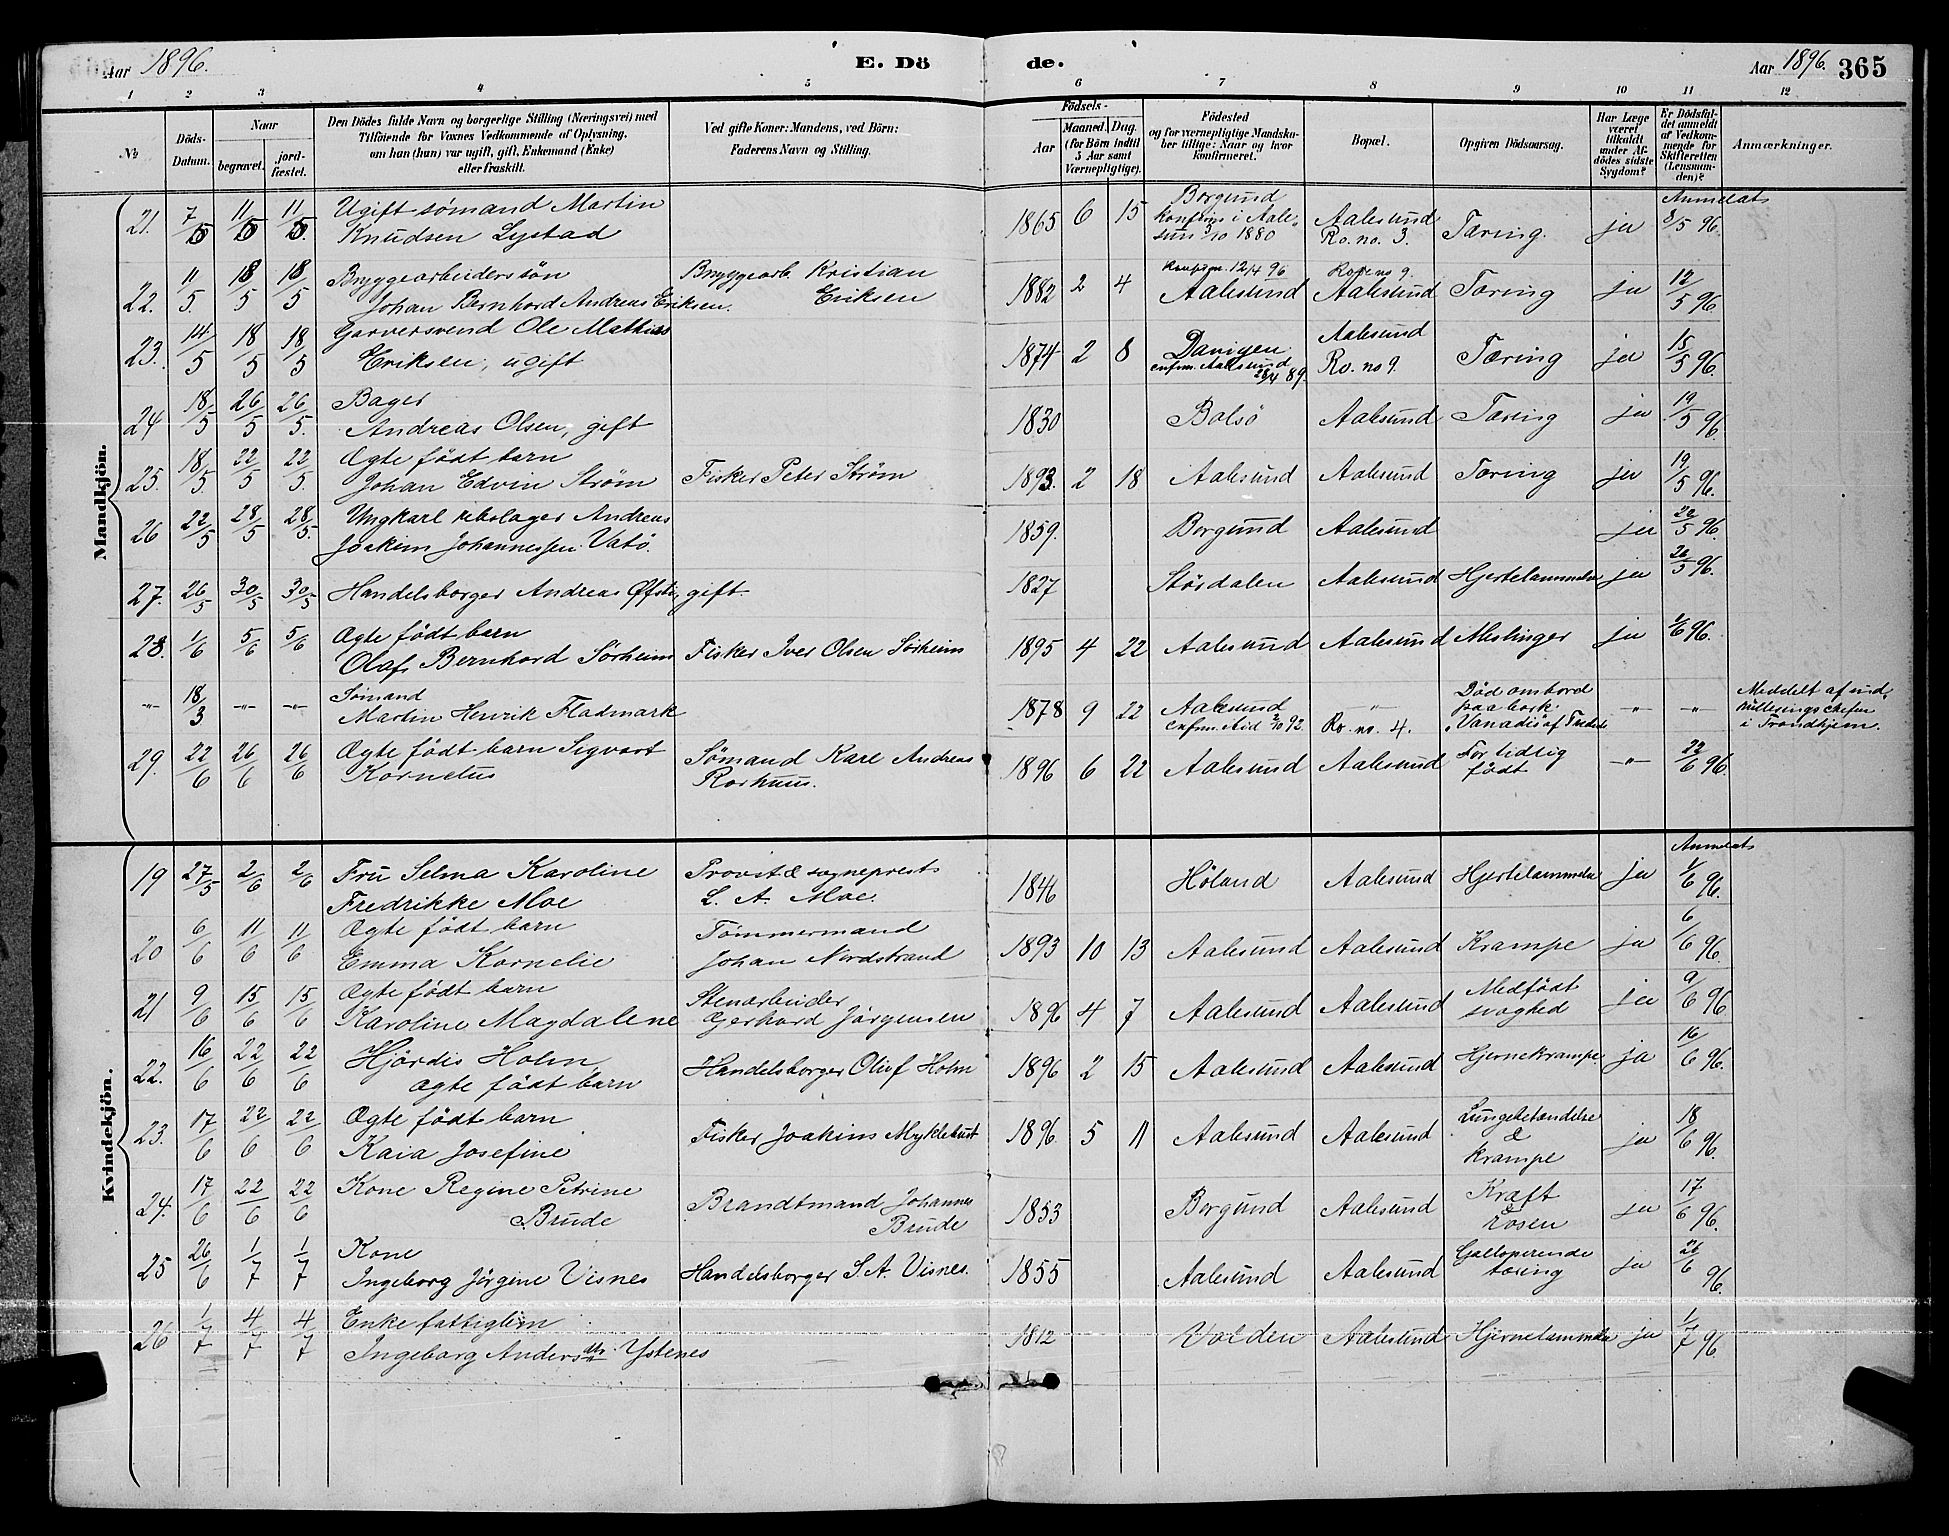 Aar 1896.
E. Dö de.
Aar 1896. 365
1 2 3 4 5 6 7 8 9 10 11 12
№
Döds-Datum.
Naar
begravet.
jord-fæstet.
Den Dödes fulde Navn og borgerlige Stilling (Næringsvei) med
Tilföiende for Voxnes Vedkommende af Oplysning,
om han (hun) var ugift, gift, Enkemand (Enke)
eller fraskilt.
Ved gifte Koner: Mandens, ved Börn:
Faderens Navn og Stilling.
Födsels-
Aar
Maaned. Dag.
(for Börn indtil
5 Aar samt
Værnepligtige).
Födested
og for værnepligtige Mandska-
ber tillige: Naar og hvor
konfirmeret.
Bopæl.
Opgiven Dödsaarsag.
Har Læge
været
tilkaldt
under Af-
dödes sidste
Sygdom?
Er Dödsfal-
det anmeldt
af Vedkom-
mende for
Skifteretten
(Lensman-
den)?
Anmærkninger.
Mandkjön.
Anmeldts
21. 7/5 11/5 11/5 Ugift sømand Martin
Knudsen Lystad
1865 6 15 Borgund
konfirm i Aale-
sund 3/10 1880
Aalesund
Ro. no. 3.
Tæring. ja 8/5 96.
22. 11/5. 18/5 18/5 Bryggearbeiderssøn
Johan Bernhard Andreas Eriksen.
Bryggearb. Kristian
Eriksen
1882 2 4 12/4 96
Aalesund
Rode no 9.
Aalesund
Tæring ja 12/5 96.
23. 14/5 18/5 18/5 Garversvend Ole Mathias
Eriksen, ugift
1874 2 8
Aalesund 28/4 89.
Aalesund
Ro. no 9.
Tæring ja 15/5 96.
24 18/5 26/5 26/5. Bager
Andreas Olsen, gift
1830 Bolsö Aalesund Tæring ja 19/5 96.
25. 18/5. 22/5 22/5. Ægte født barn
Johan Edvin Strøm
Fisker Peter Strøm
1893. 2 18 Aalesund Aalesund Tæring ja 19/5 96.
26 22/5 28/5 28/5. Ungkarl Andreas
Joakim Johannessen Vatö.
1859. Borgund Aalesund ja 22/5 96.
27. 26/5 30/5 30/5 Handelsborger Andreas Øfsti, gift.
1827 Stördalen Aalesund Hjertelammelse ja 26/5 96.
28. 1/6 5/6 5/6 Ægte født barn
Olaf Bernhard Sörheim
Fisker Iver Olsen Sörheim
1895 4 22 Aalesund Aalesund Meslinger ja 96.
-"- 18/3 -"- -"- Sömand
Martin Henrik Fladmark
1878 9 22 Aalesund
-"-
Ro. no. 4.
Död ombord
paa bark.
"Vanadis" af
-"- -"-
Meddelt af ind-
rulleringschefen
i Trondhjem.
29. 22/6 26/6 26/6 Ægte født barn Sigvart
Kornelius
Sömand Karl Andreas
1896 6 22 Aalesund Aalesund For tidlig
født
-"- 22/6 96.
Kvindekjön.
Anmeldts
19 27/5 2/6 2/6 Fru Selma Karoline
Fredrikke Moe
Provst & sogneprests
L. A. Moe.
1846 Höland Aalesund Hjertelammelse ja 1/6 96.
20 6/6 11/6 11/6 Ægte født barn
Emma Kornelie
Tömmermand
Johan Nordstrand
1893 10 13 Aalesund Aalesund Krampe ja 6/6 96.
21 9/6 15/6 15/6 Ægte født barn
Karoline Magdalene
Stenarbeider
Gerhard Jörgensen
1896 4 7 Aalesund Aalesund Medfödt
svaghed
ja 9/6 96
22. 16/6 22/6 22/6 Hjördis Holm
ægte født barn
Handelsborger Oluf Holm
1896 2 15 Aalesund Aalesund Hjernekrampe. ja 16/6 96.
23. 17/6 22/6 22/6 Ægte født barn
Kaia Josefine
Fisker Joakim Myklebust
1896. 5 11 Aalesund Aalesund Lungebetændelse
&
krampe
ja 18/6 96.
24. 17/6 22/6 22/6 Kone Regine Petrine
Brude
Brandtmand Johannes
Brude
1853 Borgund Aalesund Kræft
&
rosen
ja 17/6 96.
25 26/6 1/7 1/7 Kone
Ingeborg Jörgine Visnes
Handelsborger S. A. Visnes.
1855 Aalesund Aalesund Galloperende
tæring
ja 26/6 96.
26 1/7 4/7 4/7 Enke fattiglem
Ingeborg Andersdtr. Ystenes
1812 Volden Aalesund Hjernelammelse ja 1/7 96.